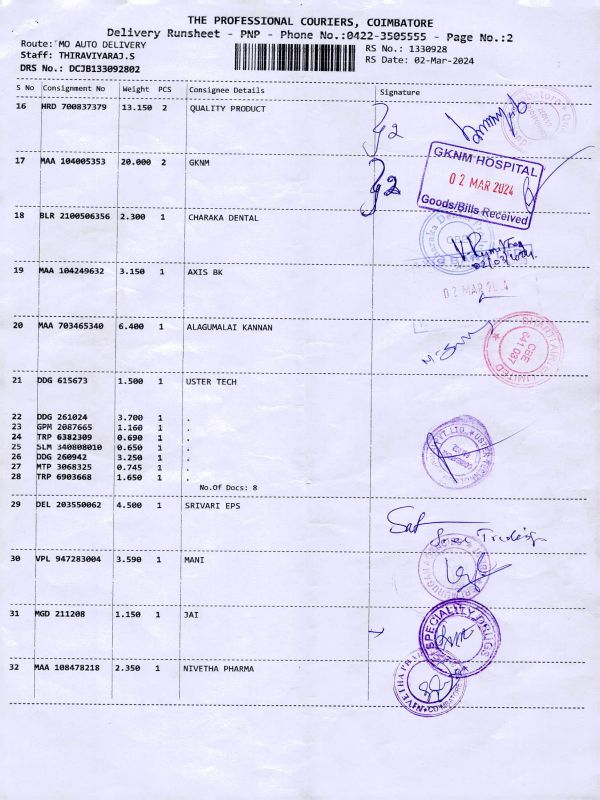 THE PROFESSIONAL COURIERS, COIMBATORE
Delivery Runsheet - PNP - Phone No.:0422-3505555 - Page No.:2
Route:'MO AUTO DELIVERY
RS No.: 1330928
Staff: THIRAVIYARAJ.S
RS Date: 02-Mar-2024
DRS No.: DCJB133092802
S No Consignment No Weight PCS Consignee Details Signature
16 HRD 700837379 13.150 2 QUALITY PRODUCT
17 MAA 104005353 20.000 2 GKNM
GKNM HOSPITAL
02 MAR 2024
Goods/Bills Received
18 BLR 2100506356 2.300 1 CHARAKA DENTAL
02/03/2024
19 MAA 104249632 3.150 1 AXIS BK
02 MAR 2024
20 MAA 703465340 6.400 1 ALAGUMALAI KANNAN
CBE
641 037
LIMITED
21 DDG 615673 1.500 1 USTER TECH
22 DDG 261024 3.700 1 .
23 GPM 2087665 1.160 1 .
24 TRP 6382309 0.690 1 .
25 SLM 340808010 0.650 1 .
26 DDG 260942 3.250 1 .
27 MTP 3068325 0.745 1 .
28 TRP 6903668 1.650 1 .
No.Of Docs: 8
PVT. LTD. * USTER
29 DEL 203550062 4.500 1 SRIVARI EPS
30 VPL 947283004 3.590 1 MANI
31 MGD 211208 1.150 1 JAI
SPECIALITY DRUGS
32 MAA 108478218 2.350 1 NIVETHA PHARMA
NIVETHA
COIMBATORE